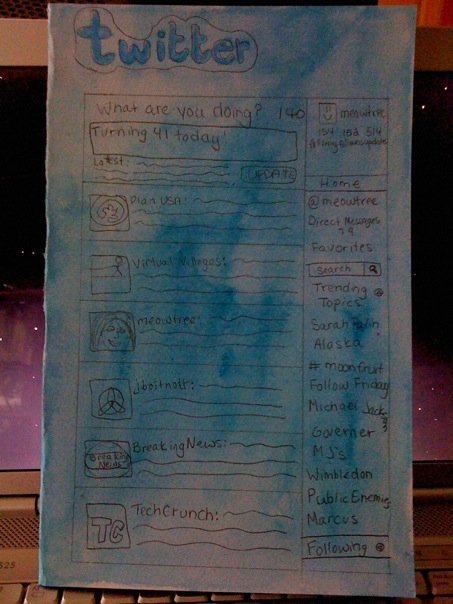 twitter
What are you doing? 140
Turning 41 today!
Latest:
UPDATE
Dian USA:
Virtual Villages:
meowtree:
Jbostnott:
BreakingNews:
Breaking
News
TechCrunch:
TC
meowtree
154 152 514
following followers updates
Home
@meowtree
Direct Messages
79
Favorites
Search
Trending
Topics
Sarah Palin
Alaska
# moonfruit
Follow Friday
Michael Jack
Governer
MJ's
Wimbledon
Public Enemies
Marcus
Following
525